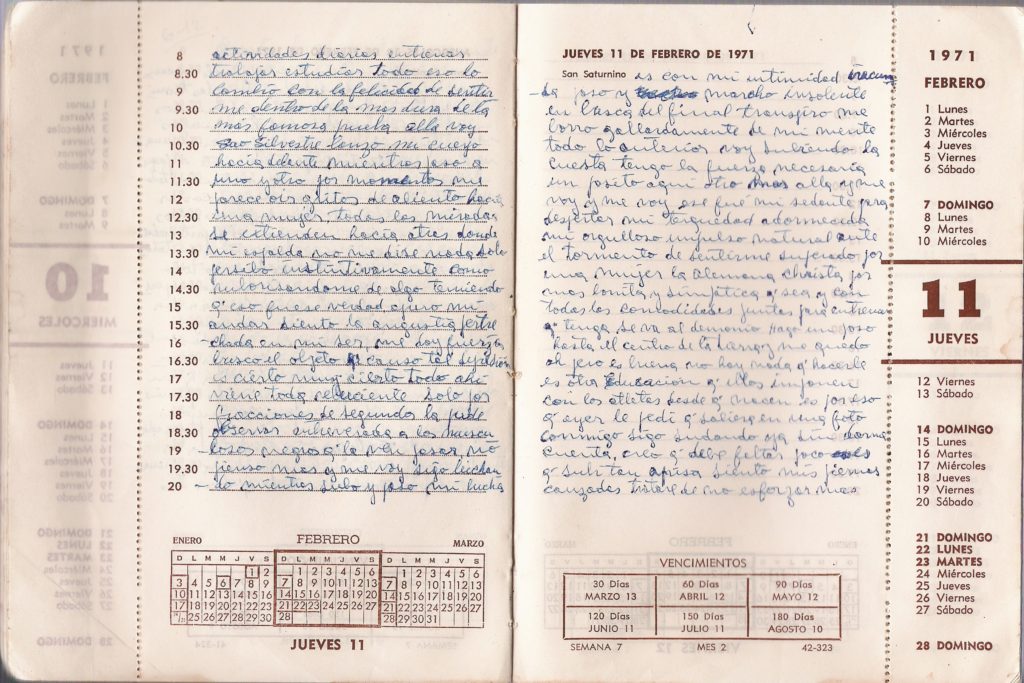 8 actividades diarias entrenar
8.30 trabajar estudiar todo eso lo
9 cambio con la felicidad de sentir
9.30 me dentro de la mas dura de la
10 más famosa prueba alla voy
10.30 Sao Silvestre lanzo mi cuerpo
11 hacia delante mientras paso a
11.30 uno y otro por momentos me
12 parece oir gritos de aliento hacia
12.30 una mujer todas las miradas
13 se extienden hacia atras donde
13.30 mi espalda no me dise nada solo
14 persibo instintivamente como
14.30 temiendo
15 q' eso fuese verdad apuro mi
15.30 andar siento la angustia pertre
16 -chada en mi ser, me doy fuerzas
16.30 busco el objeto q' causo tal
17 es cierto muy cierto todo ahi
17.30 viene toda solo por
18 fracciones de segundo la pude
18.30 observar a los muscu
19 -losos negros q' la ven pasar, no
19.30 pienso mas y me voy sigo luchan
20 -do mientras subo y paso mi lucha
ENERO FEBRERO MARZO
D L M M J V S
1 2
3 4 5 6 7 8 9
10 11 12 13 14 15 16
17 18 19 20 21 22 23
24/31 25 26 27 28 29 30
D L M M J V S
1 2 3 4 5 6
7 8 9 10 11 12 13
14 15 16 17 18 19 20
21 22 23 24 25 26 27
28
D L M M J V S
1 2 3 4 5 6
7 8 9 10 11 12 13
14 15 16 17 18 19 20
21 22 23 24 25 26 27
28 29 30 31
JUEVES 11
JUEVES 11 DE FEBRERO DE 1971
San Saturnino es con mi intimidad
-da paso y marcho insolente
en busca del final transpiro me
borro gallardamente de mi mente
todo lo anterior voy subiendo la
cuesta tengo la fuerza necesaria
un pasito aqui otro mas alla y me
voy y me voy ese fué mi sedante para
despertar mi terquedad adormecida
mi orgulloso impulso natural ante
el tormento de sentirme superado por
una mujer la alemana christa por
mas bonita y simpática q' sea y con
todas las comodidades juntas para entrenar
q' tenga se va al demonio hago un poso
hasta el centro de la tierra y me quedo
ah pero es buena no hay nada q' hacerle
es otra Educacion q' ellos imponen
con los atletas desde q' nacen es por eso
q' ayer le pedi q' saliese en una foto
conmigo sigo sudando ya sin darme
cuenta, creo q' debe faltar poco
q' subi tan aprisa siento mis piernas
canzadas tratare de no esforzar mas
VENCIMIENTOS
30 Días 60 Días 90 Días
MARZO 13 ABRIL 12 MAYO 12
120 Días 150 Días 180 Días
JUNIO 11 JULIO 11 AGOSTO 10
SEMANA 7 MES 2 42-323
1971
FEBRERO
1 Lunes
2 Martes
3 Miércoles
4 Jueves
5 Viernes
6 Sábado
7 DOMINGO
8 Lunes
9 Martes
10 Miércoles
11
JUEVES
12 Viernes
13 Sábado
14 DOMINGO
15 Lunes
16 Martes
17 Miércoles
18 Jueves
19 Viernes
20 Sábado
21 DOMINGO
22 LUNES
23 MARTES
24 Miércoles
25 Jueves
26 Viernes
27 Sábado
28 DOMINGO